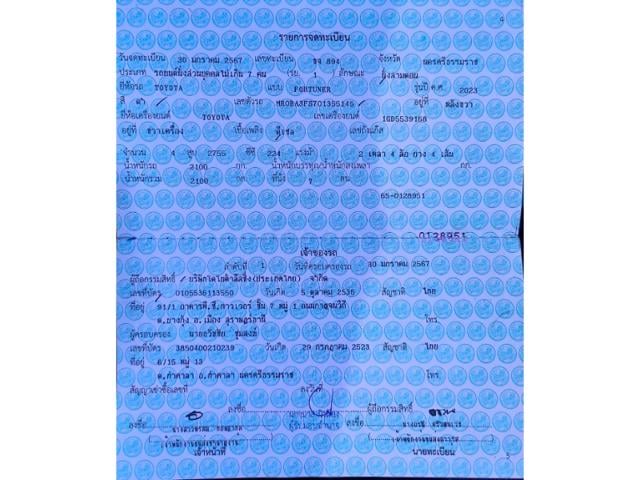 4
รายการจดทะเบียน
วันจดทะเบียน 30 มกราคม 2567 เลขทะเบียน 894 จังหวัด นครศรีธรรมราช
ประเภท รถยนต์นั่งส่วนบุคคลไม่เกิน 7 คน (รย. 1 ) ลักษณะ นั่งสามตอน
ยี่ห้อรถ TOYOTA แบบ FORTUNER รุ่นปี ค.ศ. 2023
สี ดำ เลขตัวรถ MR0BA3FS701355145 อยู่ที่ หลังขวา
ยี่ห้อเครื่องยนต์ TOYOTA เลขเครื่องยนต์ 1GD5539168
อยู่ที่ ขวาเครื่อง เชื้อเพลิง ดีเซล เลขถังแก๊ส
จำนวน 4 สูบ 2755 ซีซี 224 แรงม้า 2 เพลา 4 ล้อ ยาง 4 เส้น
น้ำหนักรถ 2100 กก. น้ำหนักบรรทุก/น้ำหนักลงเพลา กก.
น้ำหนักรวม 2100 กก. ที่นั่ง 7 คน
65-0128951
0128951
เจ้าของรถ
ลำดับที่ 1 วันที่ครอบครองรถ 30 มกราคม 2567
ผู้ถือกรรมสิทธิ์ บริษัทโตโยต้าลีสซิ่ง(ประเทศไทย) จำกัด
เลขที่บัตร 0105536113550 วันเกิด 5 ตุลาคม 2536 สัญชาติ ไทย
ที่อยู่ 91/1 อาคารพี.ซี.ทาวเวอร์ ชั้น 7 หมู่ 1 ถนนกาญจนวิถี
ต.บางกุ้ง อ.เมือง สุราษฎร์ธานี โทร.
ผู้ครอบครอง
เลขที่บัตร 3850400210239 วันเกิด 29 กรกฎาคม 2523 สัญชาติ ไทย
ที่อยู่ 6/15 หมู่ 13
ต.ท่าศาลา อ.ท่าศาลา นครศรีธรรมราช โทร.
สัญญาเช่าซื้อเลขที่ ลงวันที่
ลงชื่อ ผู้ถือกรรมสิทธิ์
ลงชื่อ ผู้รับมอบอำนาจ ลงชื่อ
เจ้าหน้าที่ นายทะเบียน
5